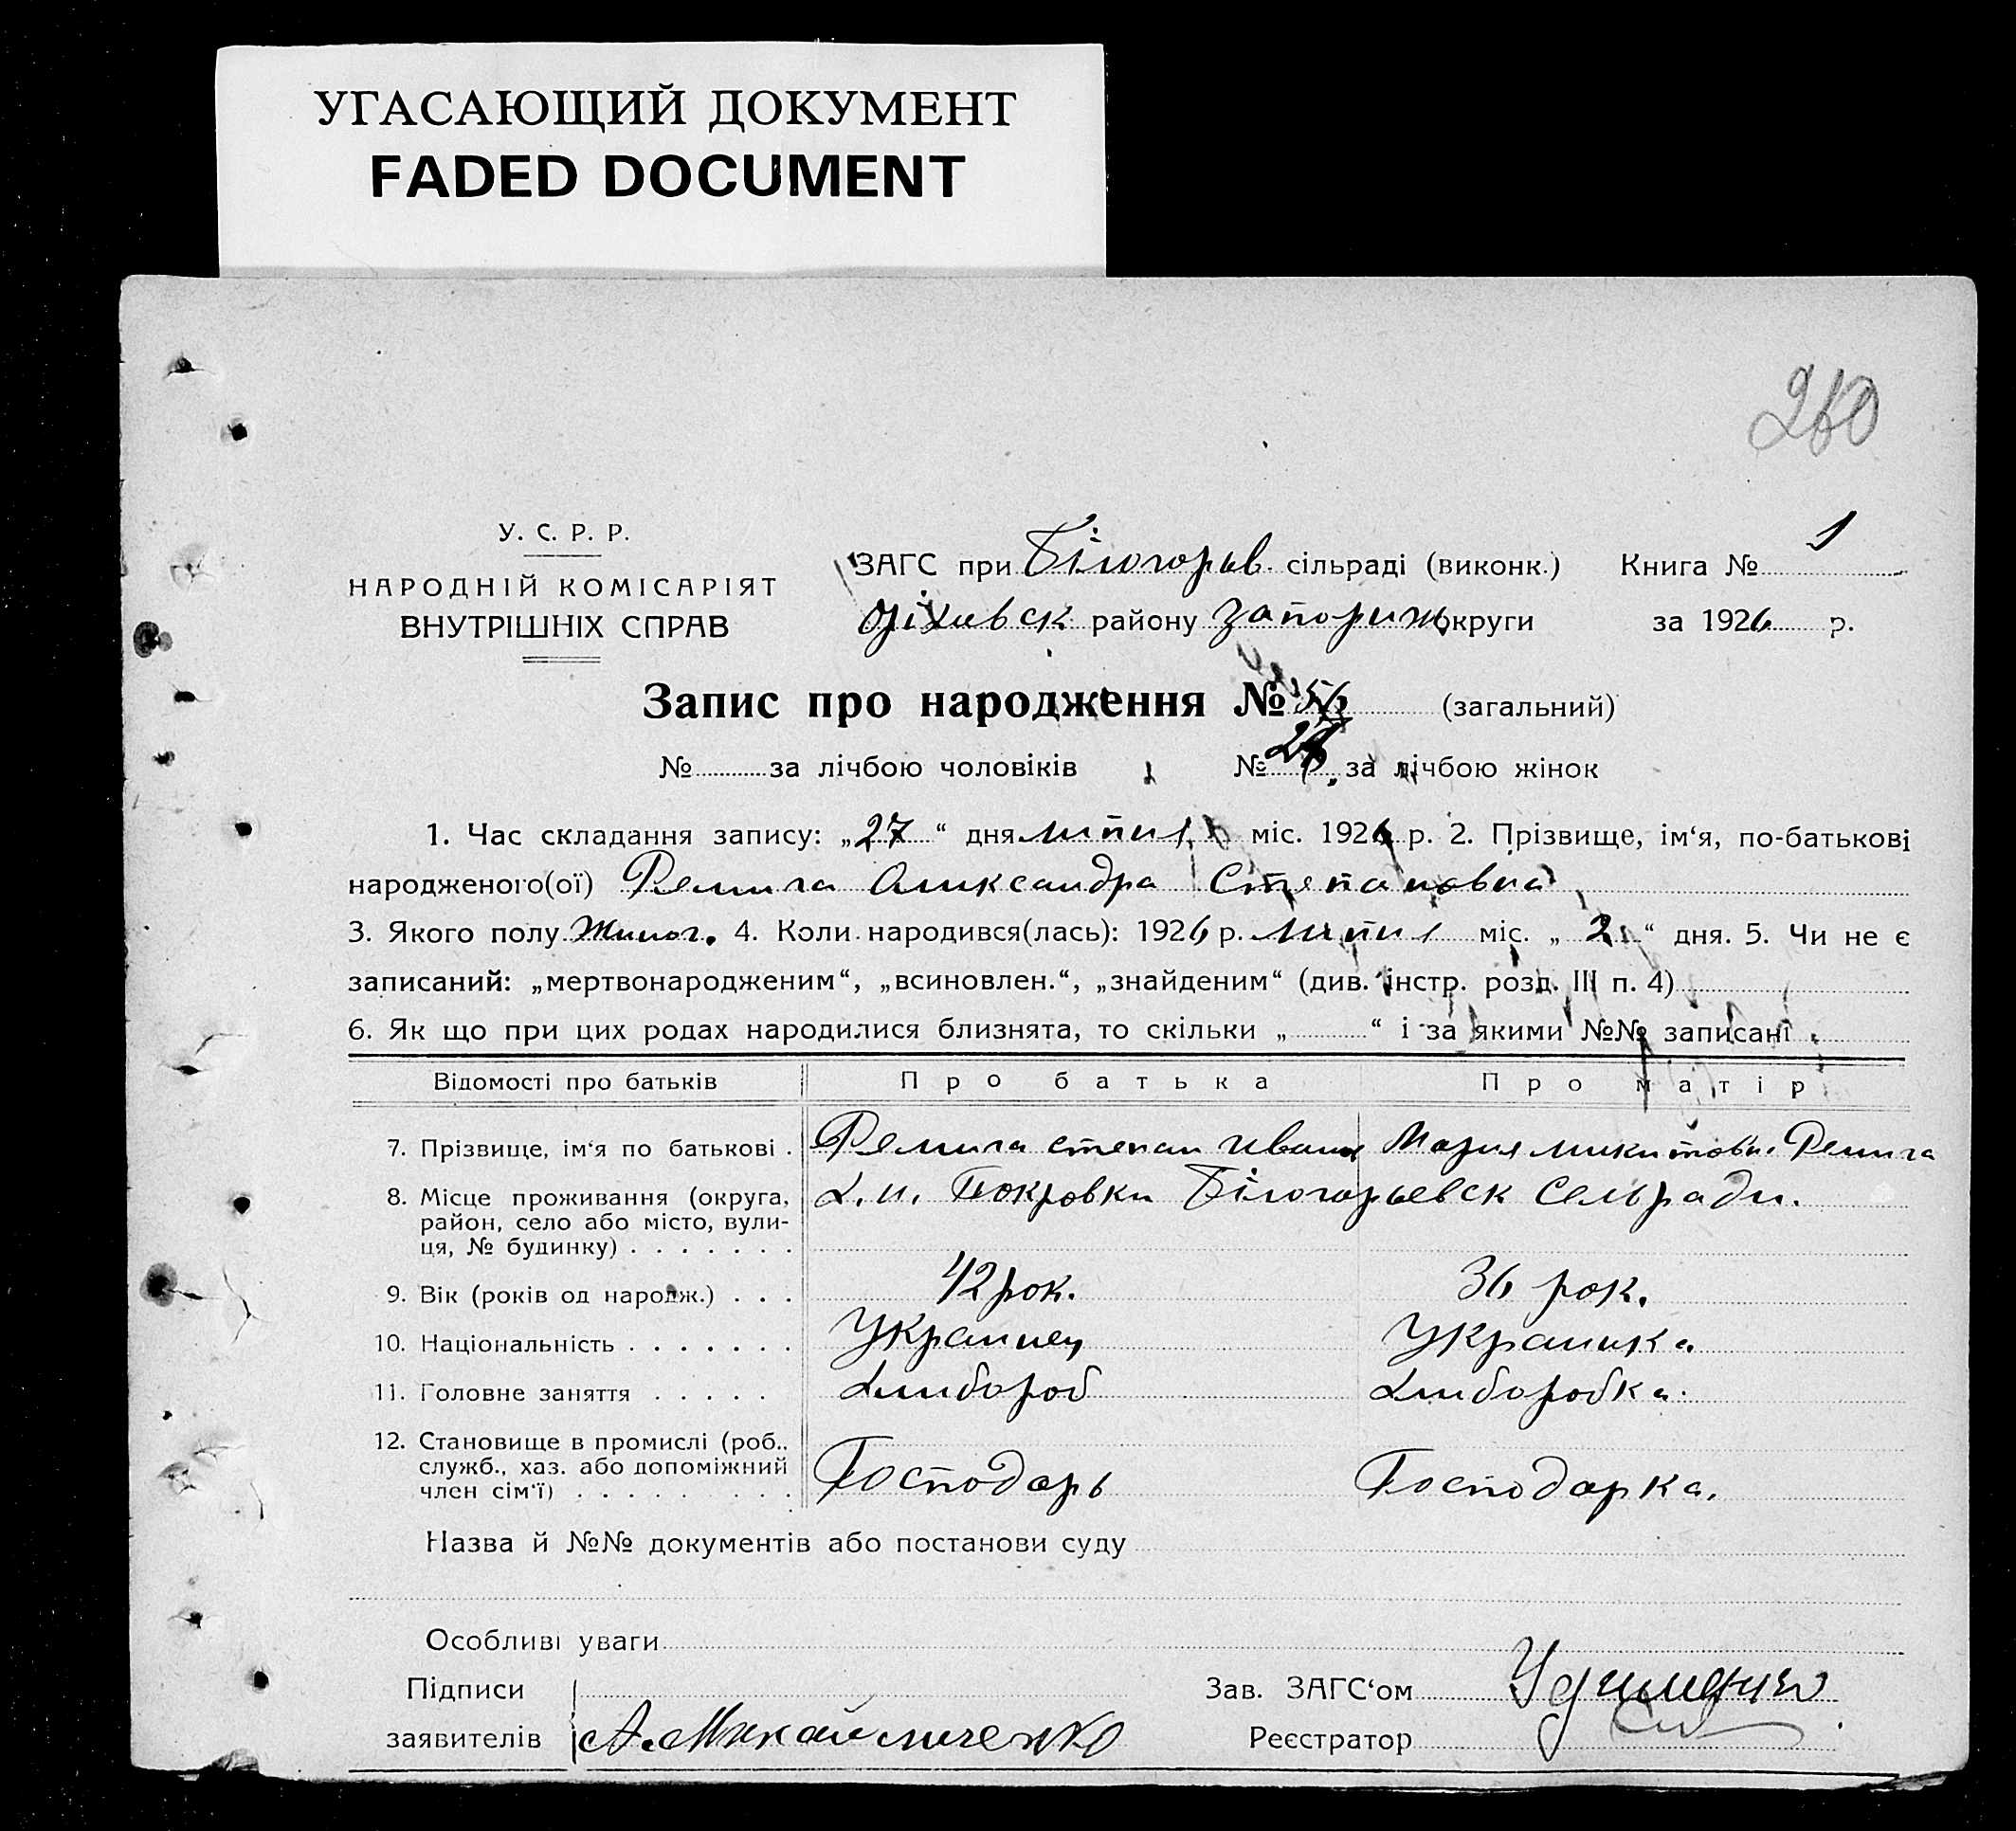 УГАСАЮЩИЙ ДОКУМЕНТ
FADED DOCUMENT
260
У. С. Р. Р.
НАРОДНІЙ КОМІСАРІЯТ
ВНУТРІШНІХ СПРАВ
ЗАГС при Білогорьв. сільраді (виконк.) Книга № 1
Оріхивск району Запориж округи за 1926 р.
Запис про народження № 56 (загальний)
№ за лічбою чоловіків № за лічбою жінок
1. Час складання запису: „27“ дня липня міс. 1926 р. 2. Прізвище, ім‘я, по-батькові
народженого(ої) Ремига Александра Степановна
3. Якого полу Жиноч. 4. Коли народився(лась): 1926 р. липня міс. „2 “ дня. 5. Чи не є
записаний: „мертвонародженим“, „всиновлен.“, „знайденим“ (див. інстр. розд. III п. 4)
6. Як що при цих родах народилися близнята, то скільки „ “ і за якими №№ записані
Відомості про батьків Про батька Про матір
7. Прізвище, ім‘я по батькові . Ремига Степан Иван Мария Микитовн. Ремига
8. Місце проживання (округа, район, село або місто, вули-ця, № будинку) Покровки Білогорьевск Сельради.
9. Вік (років од народж.) . . . 42 рок. 36 рок.
10. Національність . . . . . . . Украинец Украинка
11. Головне заняття . . . . . Хлибороб Хлиборобка.
12. Становище в промислі (роб., служб., хаз. або допоміжний член сім‘ї) Господарь Господарка.
Назва й №№ документів або постанови суду
Особливі уваги
Підписи Зав. ЗАГС‘ом
заявителів А. Михайличенко Реєстратор